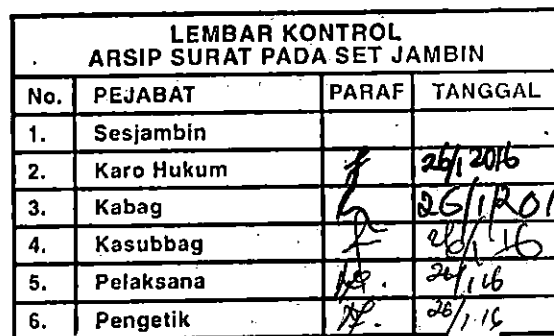 LEMBAR KONTROL
ARSIP SURAT PADA SET JAMBIN
No. PEJABAT PARAF TANGGAL
1. Sesjambin
2. Karo Hukum 26/1 2016
3. Kabag 26/1/201
4. Kasubbag 26/1 '16
5. Pelaksana 26/1 16
6. Pengetik 26/1.16